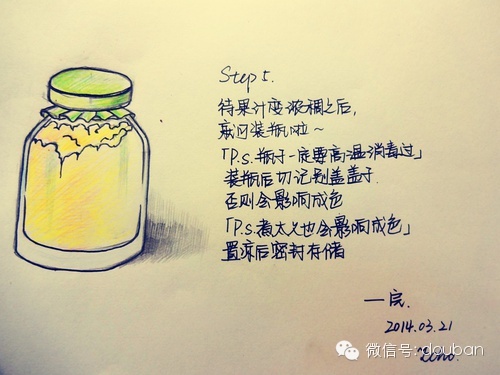 Step 5.
待果汁变浓稠之后,
就可装瓶啦~
「P.s.瓶子一定要高温消毒过」
装瓶后切记别盖盖子
否则会影响成色
「P.s.煮太久也会影响成色」
置凉后密封存储
一完.
2014.03.21
微信号:douban